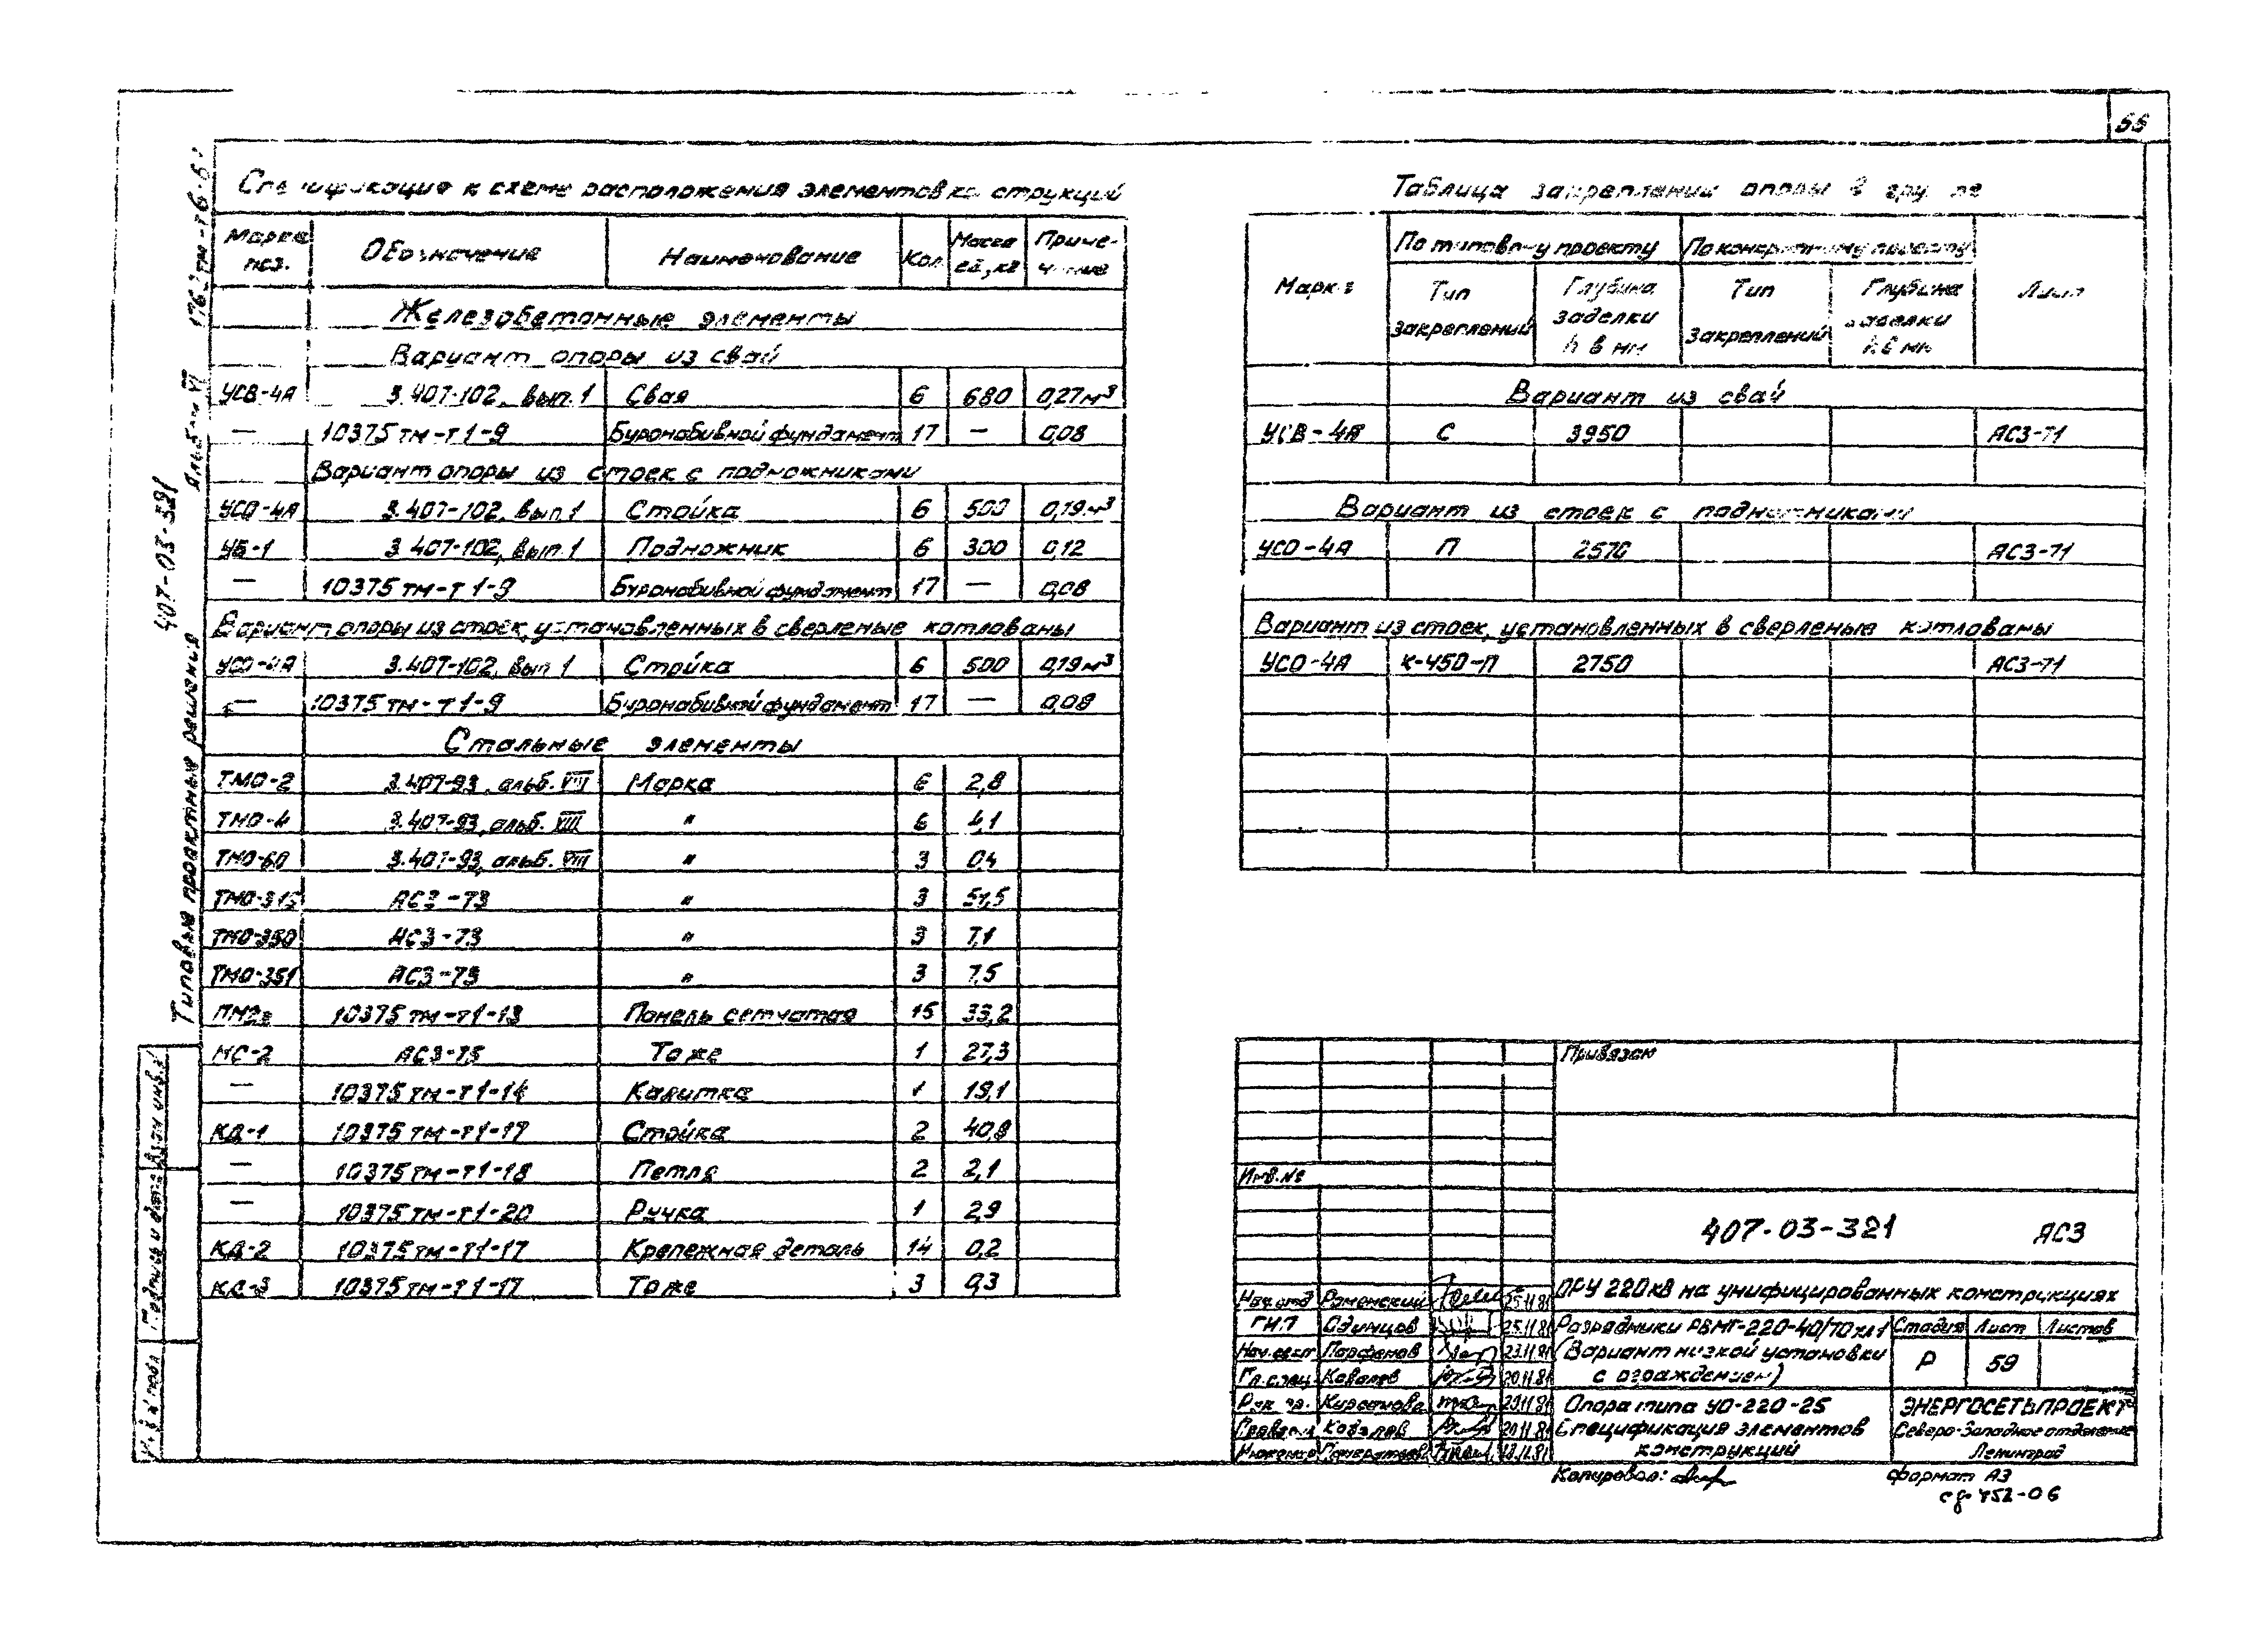 55
Спецификация к схеме расположения элементов конструкций
Марка поз. Обозначение Наименование Кол. Масса ед., кг Примечание
Железобетонные элементы
Вариант опоры из свай
УСВ-4А 3.407-102, вып.1 Свая 6 680 0,27м³
— 10375тм-т1-9 Буронабивной фундамент 17 — 0,08
Вариант опоры из стоек с подножниками
УСО-4А 3.407-102, вып.1 Стойка 6 500 0,19м³
УБ-1 3.407-102, вып.1 Подножник 6 300 0,12
— 10375тм-т1-9 Буронабивной фундамент 17 — 0,08
Вариант опоры из стоек, установленных в сверленые котлованы
УСО-4А 3.407-102, вып 1 Стойка 6 500 0,19м³
— 10375тм-т1-9 Буронабивной фундамент 17 — 0,08
Стальные элементы
ТМО-2 3.407-93, альб. VIII Марка 6 2,8
ТМО-4 3.407-93, альб. VIII " 6 4,1
ТМО-60 3.407-93, альб. VIII " 3 0,4
ТМО-315 АС3-73 " 3 51,5
ТМО-350 АС3-73 " 3 7,1
ТМО-351 АС3-73 " 3 7,5
10375тм-т1-13 Панель сетчатая 15 33,2
МС-2 АС3-75 То же 1 27,3
— 10375тм-т1-14 Калитка 1 19,1
КД-1 10375тм-т1-17 Стойка 2 40,8
— 10375тм-т1-18 Петля 2 2,1
— 10375тм-т1-20 Ручка 1 2,9
КД-2 10375тм-т1-17 Крепежная деталь 14 0,2
КД-3 10375тм-т1-17 То же 3 0,3
Таблица закреплений опоры в грунте
Марка По типовому проекту По конкретному проекту Лист
Тип закреплений Глубина заделки h в мм Тип закреплений Глубина заделки h в мм
Вариант из свай
УСВ-4А С 3950 АС3-71
Вариант из стоек с подножниками
УСО-4А П 2570 АС3-71
Вариант из стоек, установленных в сверленые котлованы
УСО-4А К-450-П 2750 АС3-71
Типовые проектные решения 407-03-321 Альбом VI
Подпись и дата
Взам инв.
Привязан
Инв.№
407-03-321 АС3
ОРУ 220кВ на унифицированных конструкциях
Нач.отд Роменский 25.11.81
ГИП Одинцов 25.11.81
Парфенов 23.11.81
Гл.спец. Ковалев 20.11.81
Рук. гр. Курсанова 20.11.81
Ковалев 20.11.81
Разрядники РВМГ-220-40/70 кл1
(Вариант низкой установки
с ограждением)
Стадия Лист Листов
Р 59
Опора типа УО-220-25
Спецификация элементов
конструкций
ЭНЕРГОСЕТЬПРОЕКТ
Северо-Западное отделение
Ленинград
Копировал:
формат А3